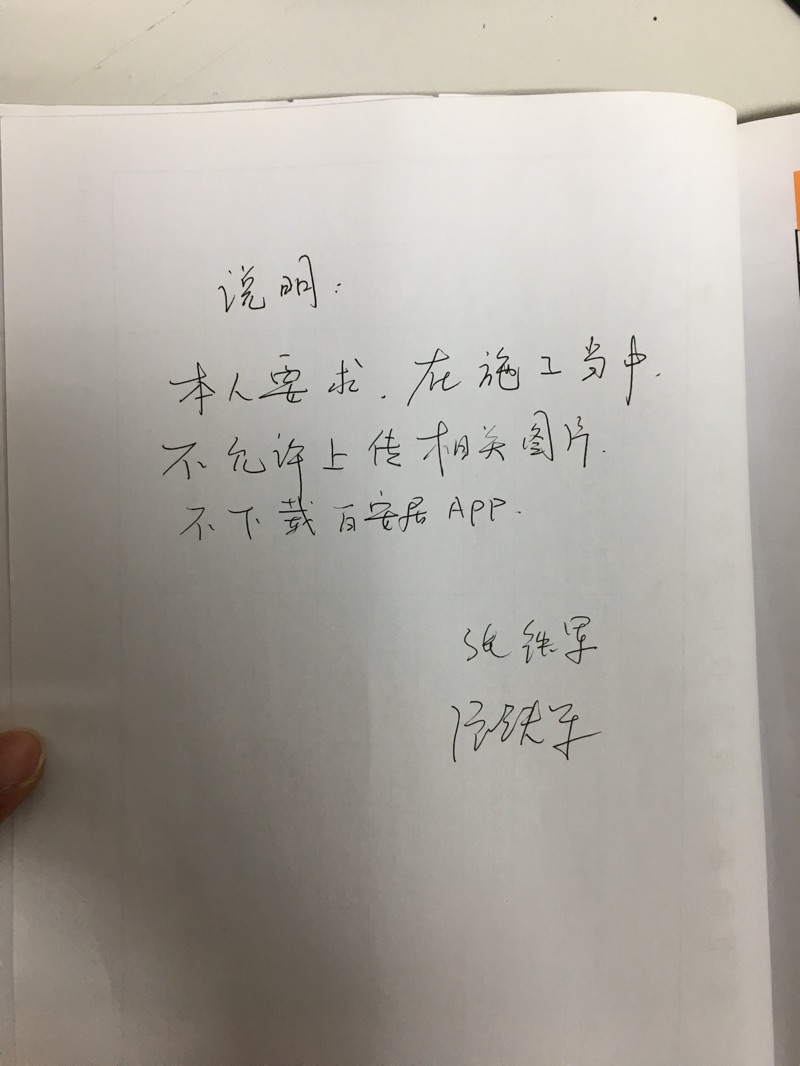 说明:
本人要求.在施工当中.
不允许上传相关图片.
不下载百安居APP.
张铁军
张铁军